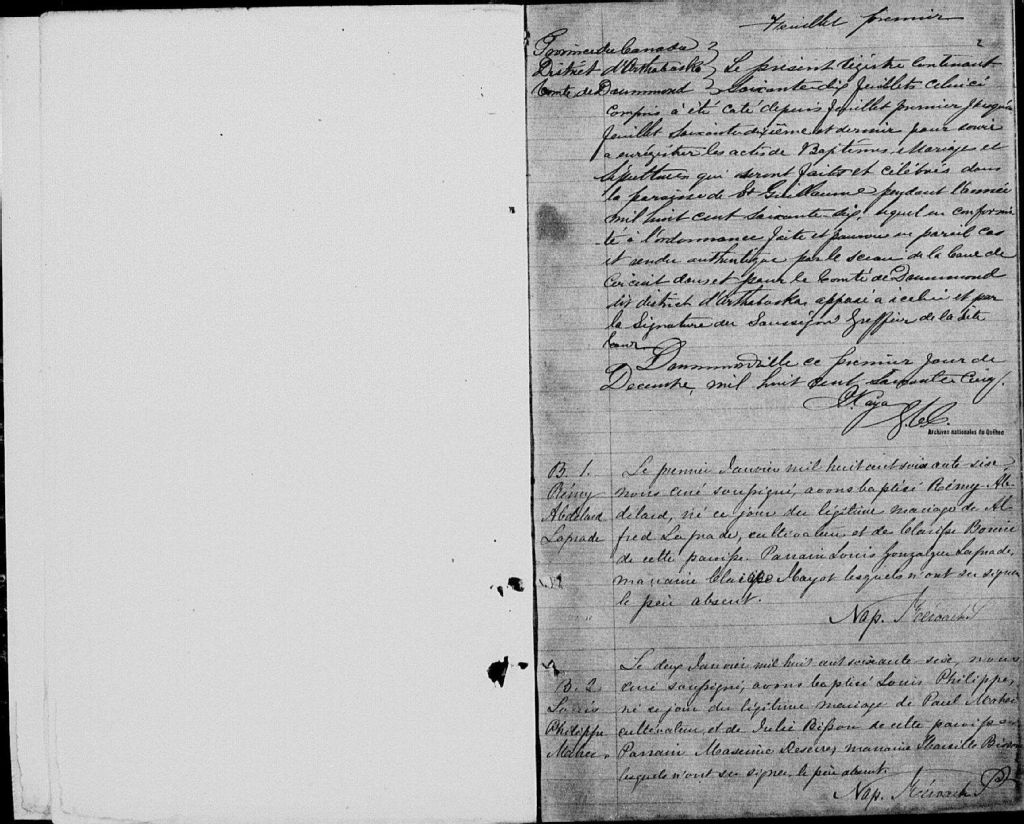 Feuillet premier
2
Province du Canada
District d'Arthabaska
Comté de Drummond
Le présent Régistre contenant
soixante dix feuillets celui ci
compris a été coté depuis feuillet premier jusqu'à
feuillet soixante dixième et dernier pour servir
a enrégistrer les actes de Baptêmes, Mariages et
Sépultures qui seront faits et célébrés dans
la paroisse de St Guillaume pendant l'année
mil huit cent soixante six, lequel en conformi
té à l'ordonnance faite et pourvue en pareil cas
et rendu authentique par le sceau de la Cour de
Circuit dans et pour le Comté de Drummond
dit district d'Arthabaska, apposé a icelui et par
la Signature du Soussigné Greffier de la dite
Cour.
Drummondville ce premier jour de
Decembre, mil huit cent soixante cinq.
G.C.C.
Archives nationales du Québec
B. 1.
Rémy
Abdelard
Laprade
Le premier Janvier mil huit cent soixante sise,
nous curé soussigné, avons baptisé Rémy Ab
delard, né ce jour du légitime mariage de Al
fred Laprade, cultivateur et de Clarisse
de cette paroisse. Parrain Louis Gonzalque Laprade,
marraine Mayot lesquels n'ont su signer
le père absent.
Nap. Kéroack P
B. 2.
Louis
Philippe
Le deux Janvier mil huit cent soixante sise, nous
curé soussigné, avons baptisé Louis Philippe,
né ce jour du légitime mariage de Paul
cultivateur et de Julie Bisson de cette paroisse
Parrain marraine
lesquels n'ont su signer, le père absent.
Nap. Kéroack P